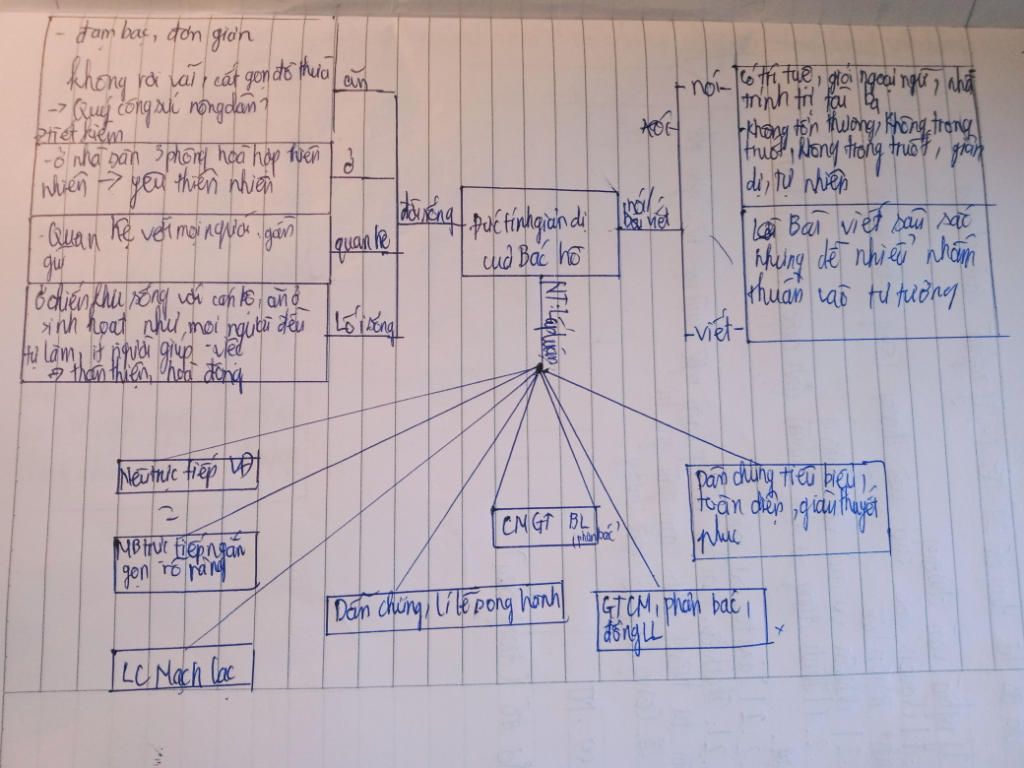 - đạm bạc, đơn giản
không rơi vãi, cất gọn đồ thừa
-> Quý công sức nông dân?
=> tiết kiệm
ăn
- ở nhà sàn 3 phòng hoà hợp thiên
nhiên -> yêu thiên nhiên
ở
- Quan hệ với mọi người gần
gũi
quan hệ
Ở chiến khu sống với cán bộ, ăn ở
sinh hoạt như mọi người đều
tự làm, ít người giúp việc
=> thân thiện, hoà đồng
Lối sống
đời sống
Đức tính giản dị
của Bác Hồ
nói/
bài viết
- nói -
Có trí tuệ, giỏi ngoại ngữ, nhà
trình trị tài ba
- không tổn thương, không trong
truốt, không trong truốt, giản
dị, tự nhiên
- viết -
Bài viết sâu sắc
nhưng dễ nhiều nhầm
thuần vào tư tưởng
NT lập luận
Nêu trực tiếp VĐ
=
MB trực tiếp, ngắn
gọn rõ ràng
LC Mạch lạc
Dẫn chứng, lí lẽ song hành
CM GT BL
phản bác
GT CM, phản bác,
đồng LL
x
Dẫn chứng tiêu biểu,
toàn diện, giàu thuyết
phục